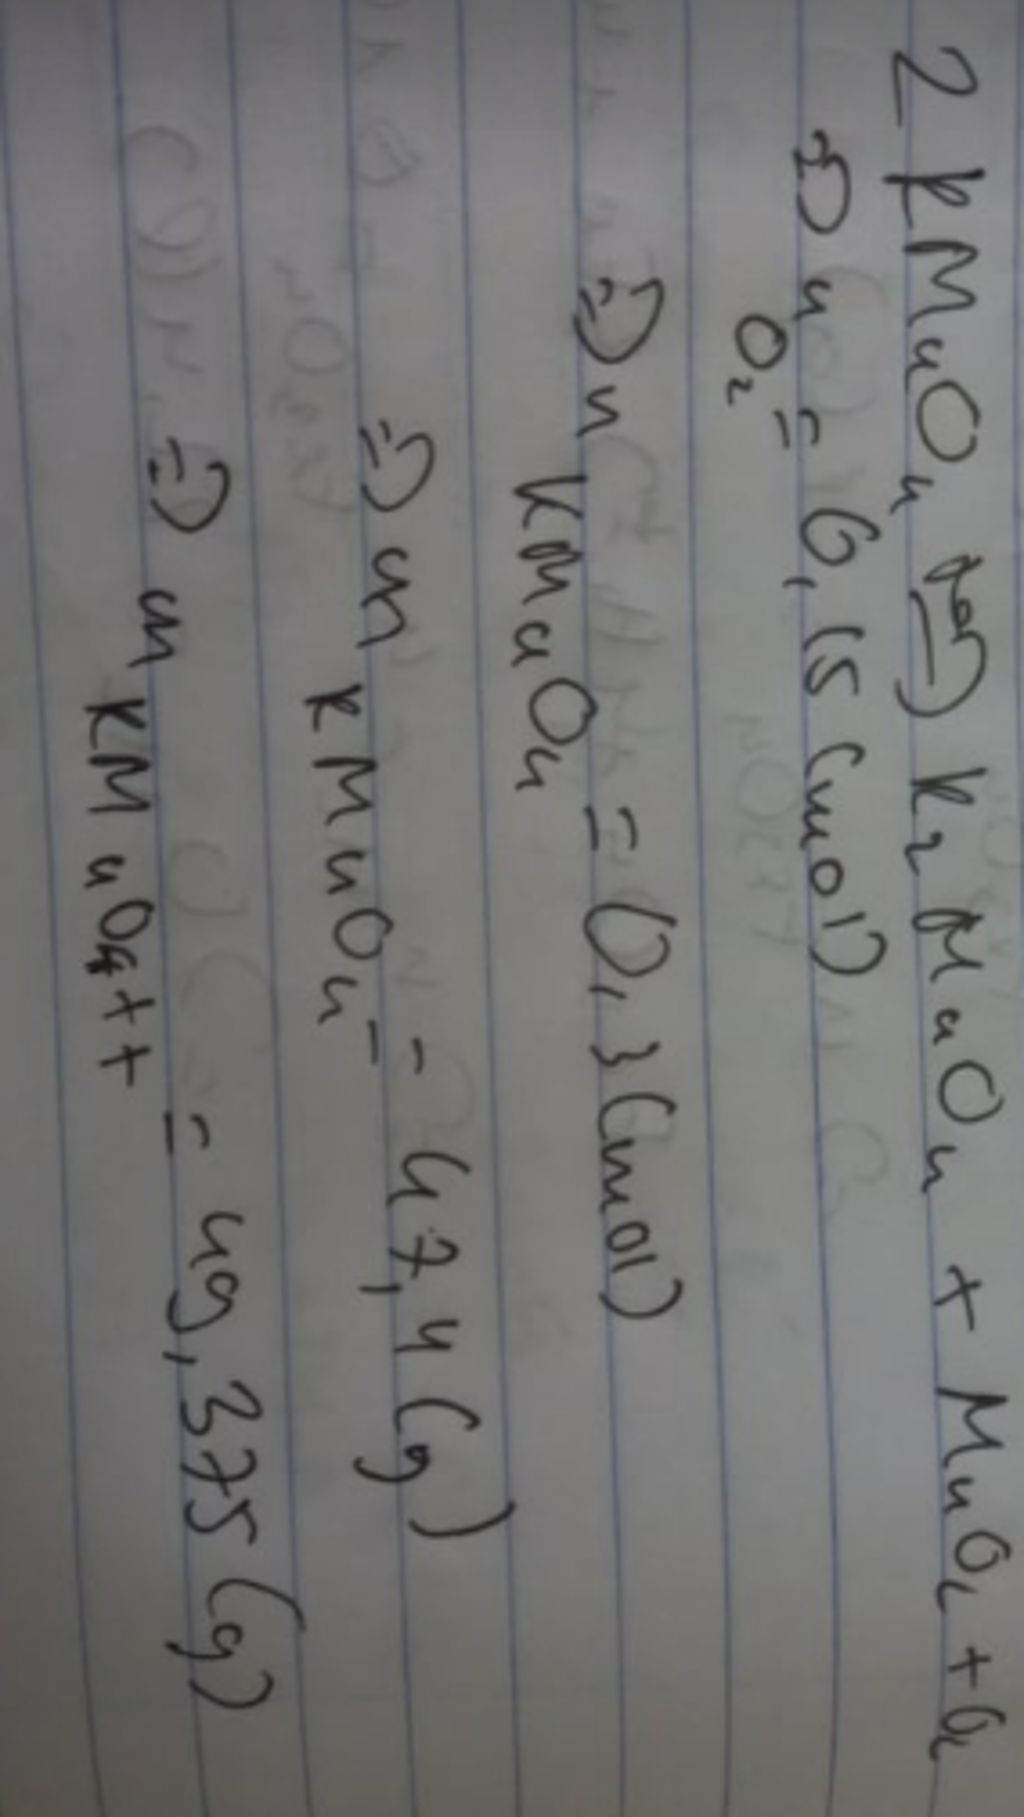 2KMnO4 t°→ K2MnO4 + MnO2 + O2
=> nO2 = 0,15 (mol)
=> nKMnO4 = 0,3 (mol)
=> mKMnO4 = 47,4 (g)
=> mKMnO4tt = 49,375 (g)